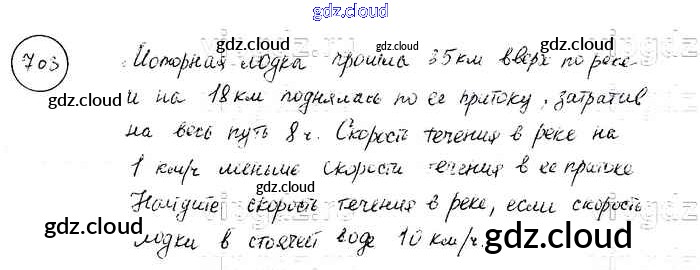 gdz.cloud
703
Моторная лодка прошла 35 км вверх по реке
и на 18 км поднялась по ее притоку, затратив
на весь путь 8 ч. Скорость течения в реке на
1 км/ч меньше скорости течения в ее притоке
Найдите скорость течения в реке, если скорость
лодки в стоячей воде 10 км/ч.
gdz.cloud
gdz.cloud
gdz.cloud
gdz.cloud
gdz.cloud
gdz.cloud
gdz.cloud
gdz.cloud
gdz.cloud
gdz.cloud